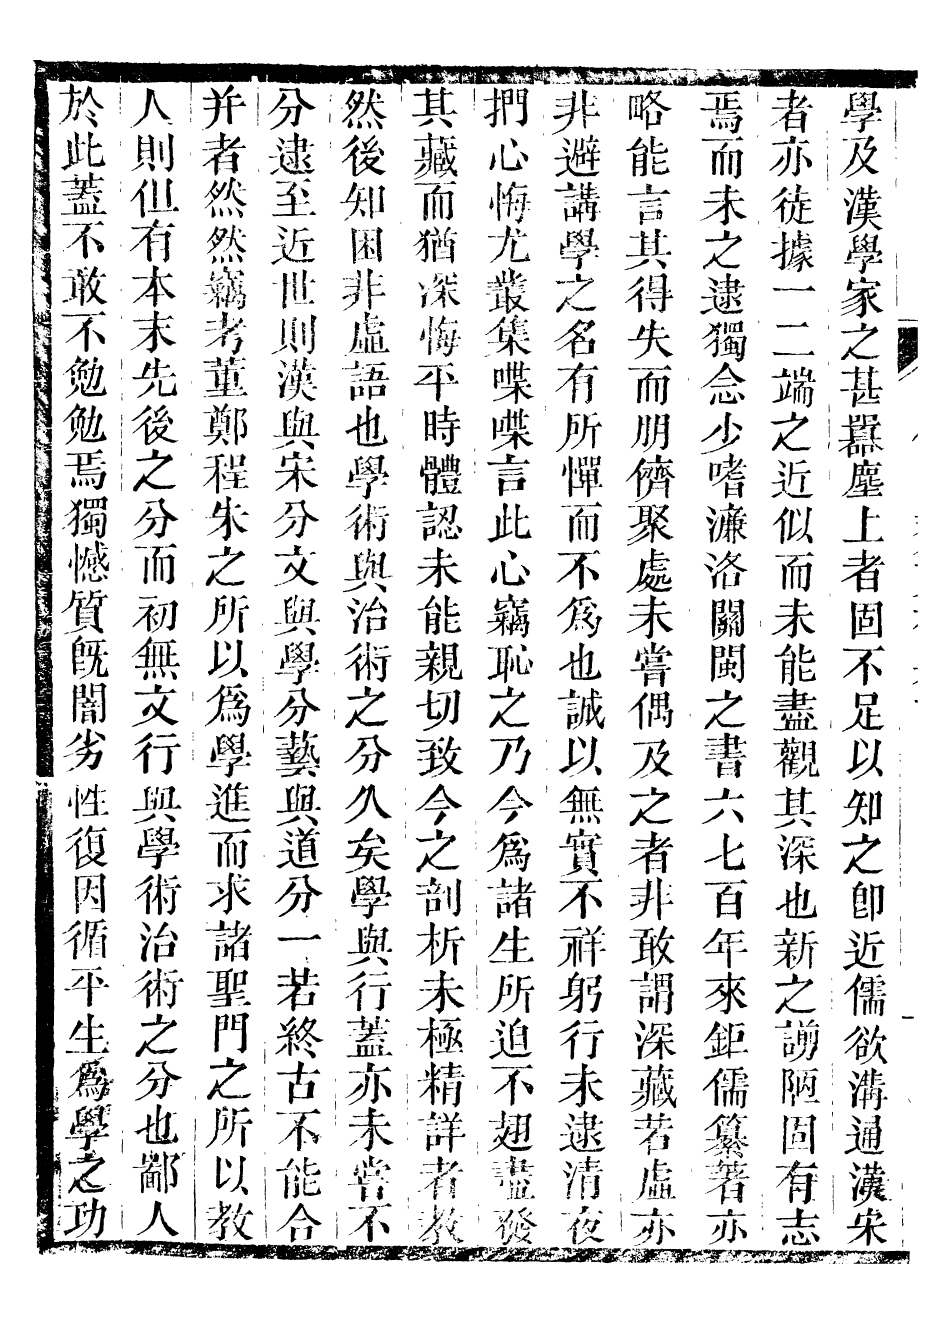 學及漢學家之甚囂塵上者固不足以知之卽近儒欲溝通漢宋
者亦徒據一二端之近似而未能盡觀其深也新之譾陋固有志
焉而未之逮獨念少嗜濂洛關閩之書六七百年來鉅儒纂著亦
略能言其得失而朋儕聚處未嘗偶及之者非敢謂深藏若虛亦
非避講學之名有所憚而不爲也誠以無實不祥躬行未逮清夜
捫心悔尤叢集喋喋言此心竊恥之乃今爲諸生所迫不翅盡發
其藏而猶深悔平時體認未能親切致今之剖析未極精詳者教
然後知困非虛語也學術與治術之分久矣學與行蓋亦未嘗不
分逮至近世則漢與宋分文與學分藝與道分一若終古不能合
并者然然竊考董鄭程朱之所以爲學進而求諸聖門之所以教
人則但有本末先後之分而初無文行與學術治術之分也鄙人
於此蓋不敢不勉勉焉獨憾質旣闇劣性復因循平生爲學之功